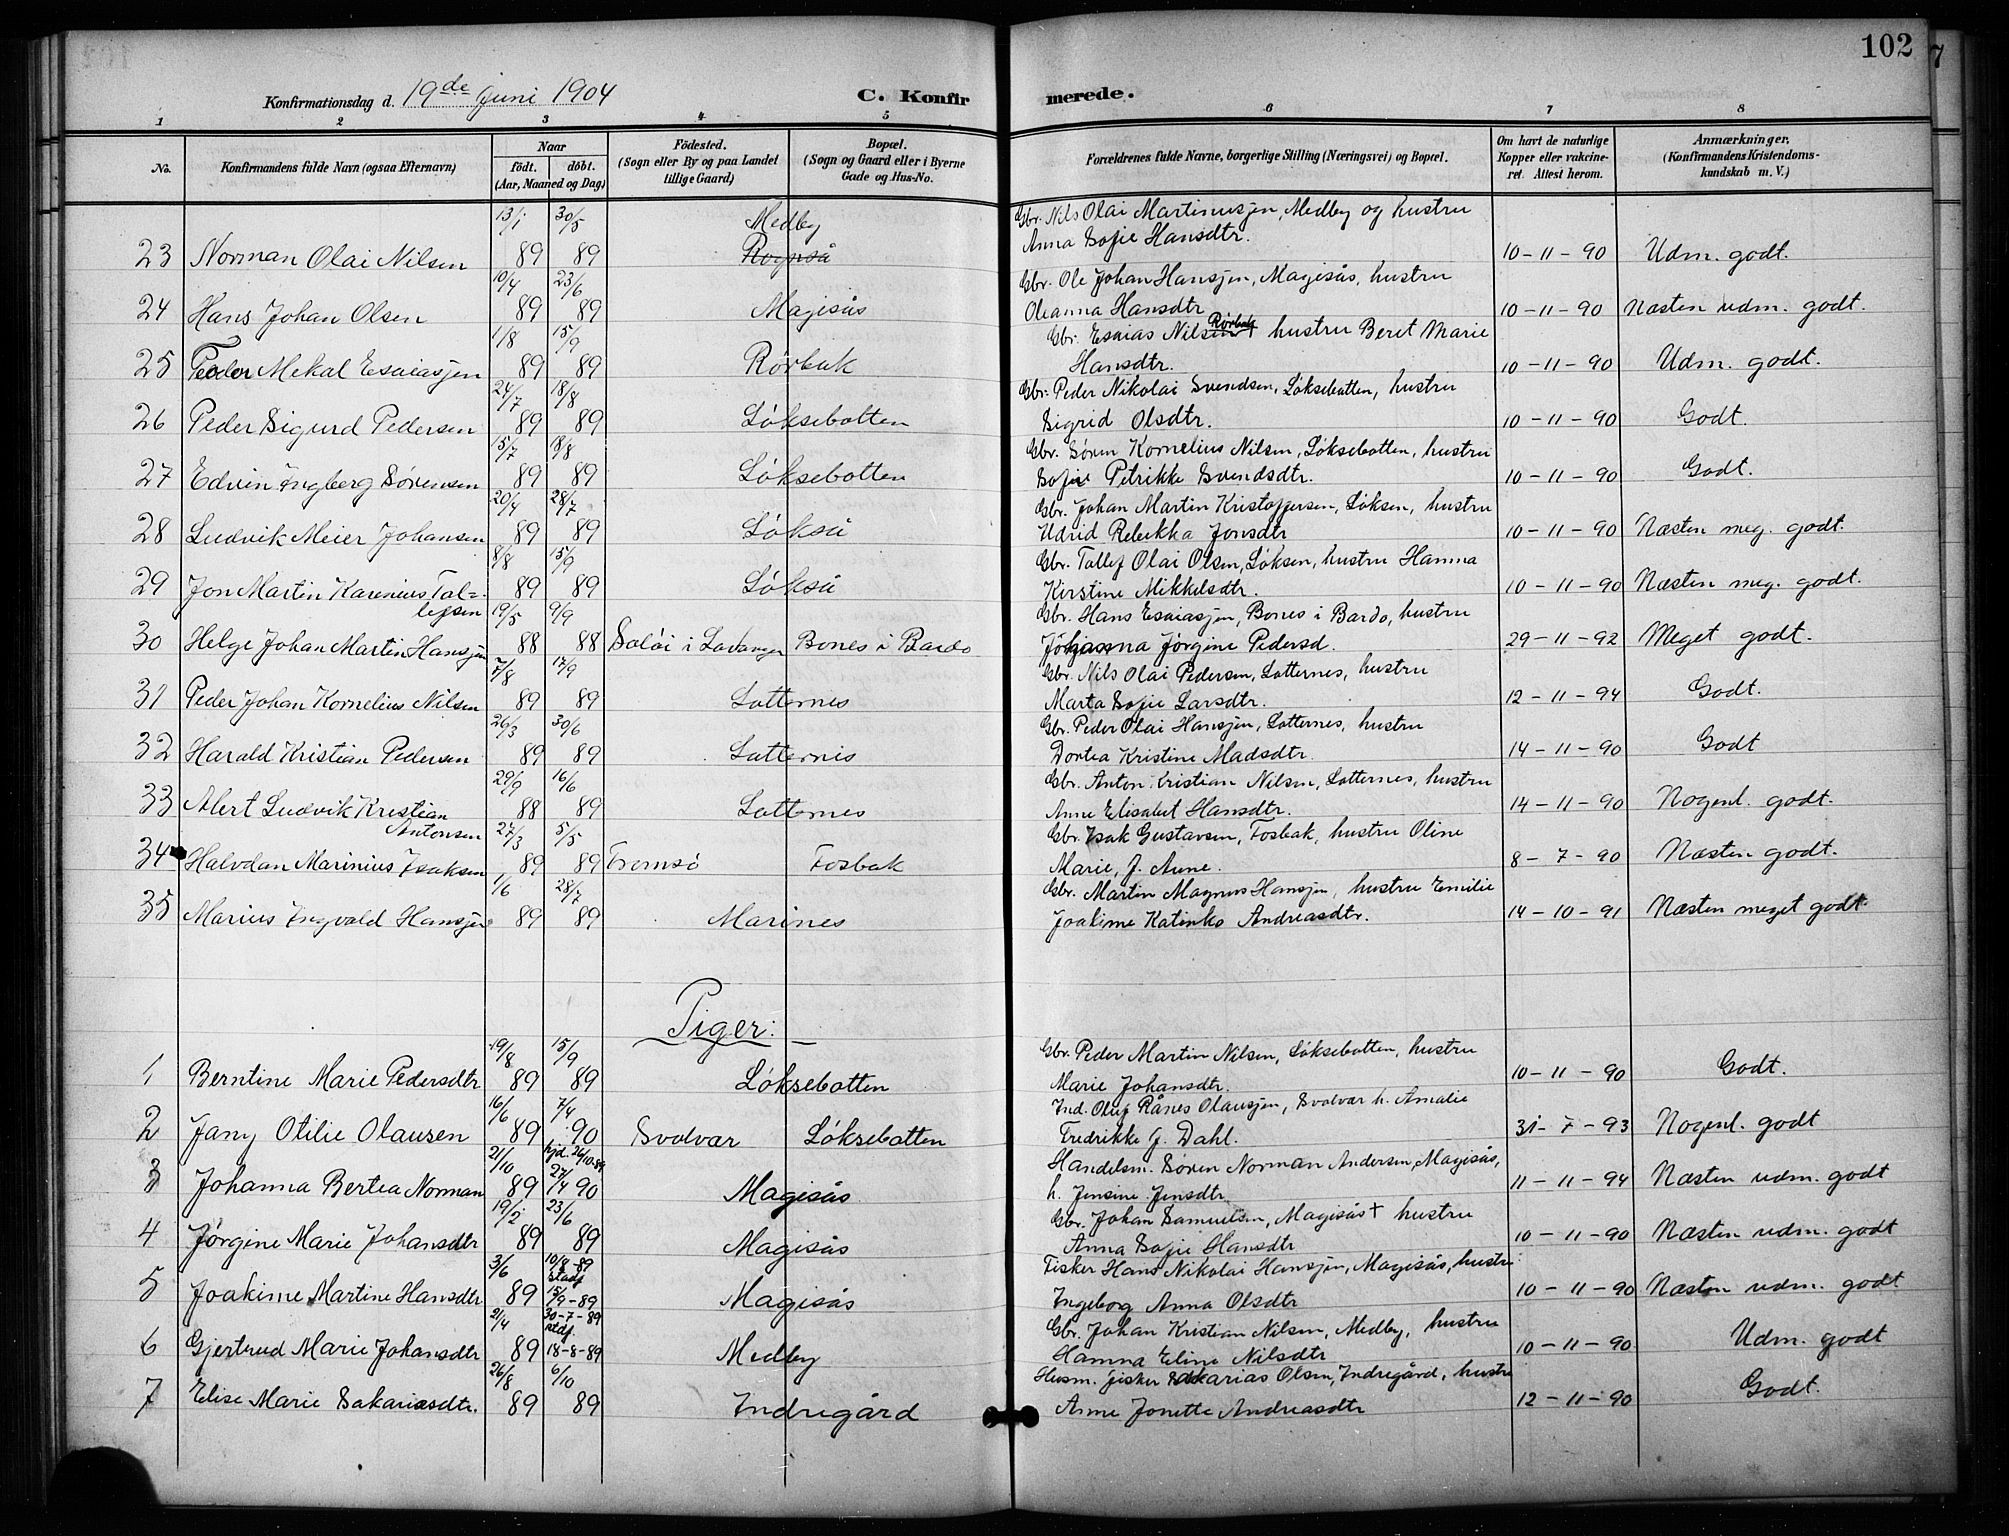 102
Konfirmationsdag d. 19de Juni 1904 C. Konfirmerede.
1 2 3 4 5 6 7 8
No. Konfirmandens fulde Navn (ogsaa Efternavn) Naar født. døbt. (Aar, Maaned og Dag) Födested. (Sogn eller By og paa Landet tillige Gaard) Bopæl. (Sogn og Gaard eller i Byerne Gade og Hus-No. Forældrenes fulde Navne, borgerlige Stilling (Næringsvei) og Bopæl. Om havt de naturlige Kopper eller vakcineret. Attest herom. Anmærkninger. (Konfirmandens Kristendomskundskab m. V.)
23 Norman Olai Nilsen 13/1 89 30/5 89 Medby Gbr. Nils Olai Martinusjen, Medby og hustru Anna Sofie Hansdtr. 10-11-90 Udm. godt.
24 Hans Johan Olsen 10/4 89 23/6 89 Magisås Gbr. Ole Johan Hansjen, Magisås, hustru Oleanna Hansdtr 10-11-90 Næsten udm. godt.
25 Peder Mekal Esaiasjen 1/8 89 15/9 89 Rørbak Gbr. Esaias Nilsen Rørbak hustru Beret Marie Hansdtr. 10-11-90 Udm. godt.
26 Peder Sigurd Pedersen 24/7 89 18/8 89 Løksebotten Gbr. Peder Nikolai Svendsen, Løksebotten, hustru Sigrid Olsdtr. 10-11-90 Godt.
27 Edvin Ingberg Sørensen 15/7 89 8/8 89 Løksebotten Gbr. Søren Kornelius Nilsen, Løksebotten, hustru Sofie Petrikke Svendsdtr. 10-11-90 Godt.
28 Ludvik Meier Johansen 20/4 89 28/7 89 Løkså Gbr. Johan Martin Kristoffersen, Løksen, hustru Udrid Rebekka Jonsdtr 10-11-90 Næsten meg. godt.
29 Jon Martin Karenius Tallefsen 8/8 89 15/9 89 Løkså Gbr. Tallef Olai Olsen, Løksen, hustru Hanna Kirstine Mikkelsdtr. 10-11-90 Næsten meg. godt.
30 Helge Johan Martin Hansjen 19/5 88 9/9 88 Soløi i Lavangen Bones i Bardo Gbr. Hans Esaiasjen, Bones i Bardo, hustru Johanna Jørgine Pedersd. 29-11-92 Meget godt.
31 Peder Johan Kornelius Nilsen 7/8 89 17/9 89 Lotternes Gbr. Nils Olai Pedersen, Lotternes, hustru Marta Sofie Larsdtr. 12-11-94 Godt.
32 Harald Kristian Pedersen 26/3 89 30/6 89 Lotternes Gbr. Peder Olai Hansjen, Lotternes, hustru Dortea Kristine Madsdtr. 14-11-90 Godt
33 Alert Ludvik Kristian Antonsen 29/9 88 16/6 89 Lotternes Gbr. Anton Kristian Nilsen, Lotternes, hustru Anne Elisabet Hansdtr. 14-11-90 Nogenl. godt.
34 Halvdan Marinius Isaksen 27/3 89 5/5 89 Tromsø Fosbak Gbr. Isak Gustavsen, Fosbak, hustru Oline Marie, J. Aune. 8-7-90 Næsten godt.
35 Marius Ingvald Hansjen 1/6 89 28/7 89 Marines Gbr. Martin Magnus Hansjen, hustru Emilie Joakime Katinka Andreasdtr. 14-10-91 Næsten meget godt.
Piger:
1 Berntine Marie Pedersdtr 19/8 89 15/9 89 Løksebotten Gbr. Peder Martin Nilsen, Løksebotten, hustru Marie Johansdtr. 10-11-90 Godt.
2 Jany Otilie Olausen 16/6 89 7/4 90 Svolvær Løksebotten Ind. Oluf Rånes Olausjen, Svolvær h. Amalie Fredrikke G. Dahl. 31-7-93 Nogenl. godt
3 Johanna Bertea Norman 21/10 89 hjd. 26/10-89 27/4 90 Magisås Handelsm. Søren Norman Andersen, Magisås, h. Jensine Jensdtr. 11-11-94 Næsten udm. godt
4 Jørgine Marie Johansdtr 19/2 89 23/6 89 Magisås Gbr. Johan Samuelsen, Magisås+ hustru Anna Sofie Hansdtr 10-11-90 Næsten udm. godt
5 Joakime Martine Hansdtr 3/6 89 10/8-89 stadf 15/9-89 Magisås Fisker Hans Nikolai Hansjen, Magisås, hustru Ingeborg Anna Olsdtr 10-11-90 Næsten udm. godt
6 Gjertrud Marie Johansdtr 21/4 89 30-7-89 stdf. 18-8-89 Medby Gbr. Johan Kristian Nilsen, Medby, hustru Hanna Eline Nilsdtr 10-11-90 Udm. godt
7 Elise Marie Sakariasdtr. 26/8 89 6/10 89 Indregård Husm. fisker Sakarias Olsen, Indregård, hustru Anne Jonette Andreasdtr 12-11-90 Godt.